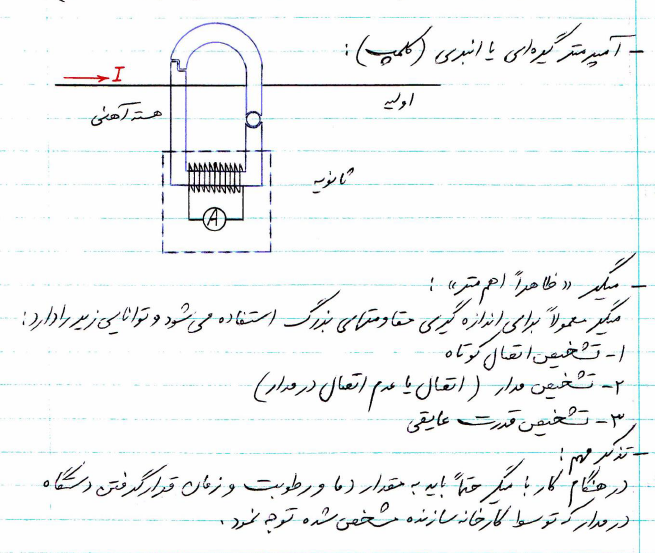 - آمپرمتر گیره‌ای یا انبری (کلمپ) :
I
اولیه
هسته آهنی
ثانویه
A
- میگر «ظاهراً اهم متر» :
میگر معمولاً برای اندازه گیری مقاومتهای بزرگ استفاده می شود و توانایی زیر را دارد :
۱- تشخیص اتصال کوتاه
۲- تشخیص مدار (اتصال یا عدم اتصال در مدار)
۳- تشخیص قدرت عایقی
- تذکر مهم :
در هنگام کار با میگر حتماً باید به مقدار دما و رطوبت و زمان قرار گرفتن دستگاه
در مدار که توسط کارخانه سازنده مشخص شده توجه نمود .